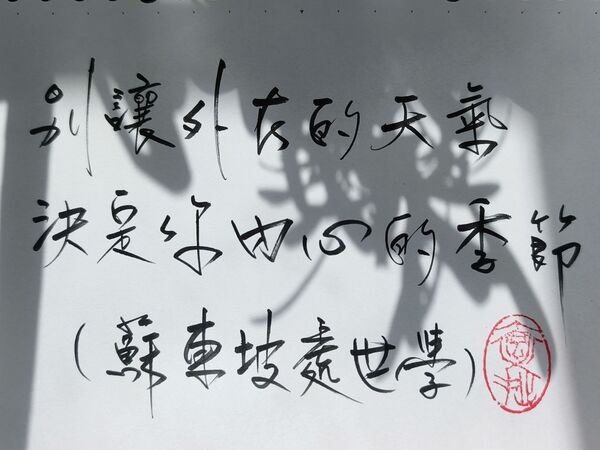 別讓外在的天氣
決定你內心的季節
（蘇東坡處世學）